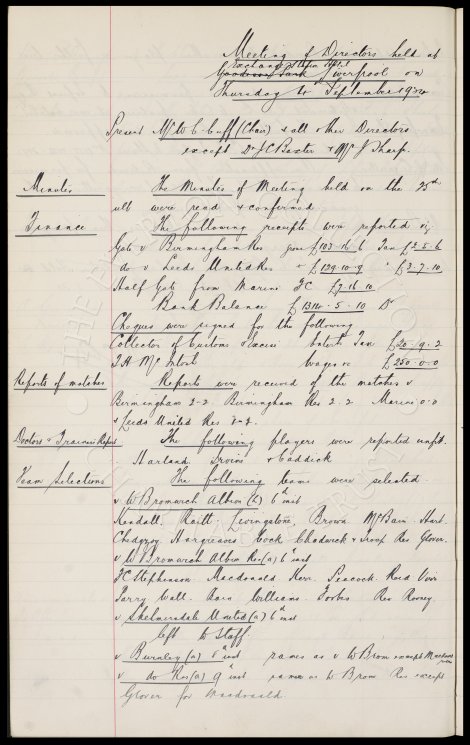 Meeting of Directors held at
Exchange Station Hotel
Goodison Park Liverpool on
Thursday 4th September 1924
Present Mr W C Cuff (Chair) & all other Directors
except Dr J C Baxter & Mr J Sharp.
Minutes The Minutes of Meeting held on the 25th
ult were read & confirmed
Finance The following receipts were reported viz
Gate v Birmingham Res gross £103-16-6 Tax £2-5-6
do v Leeds United Res " £129-10-9 " £3-7-10
Half Gate from Marine FC £7-16-10
Bank Balance £1314-5-10 Dr
Cheques were signed for the following
Collector of Customs & Excise Entert Tax £20-9-2
T H McIntosh Wages &c £250-0-0
Reports of matches Reports were received of the matches v
Birmingham 2-2 Birmingham Res 2-2 Marine 0-0
& Leeds United Res
Doctors & Trainers Report The following players were reported unfit.
Harland Irvine & Caddick
Team Selections The following teams were selected
v W Bromwich Albion 6th inst
Kendall. Raitt Livingstone, Brown McBain. Hart.
Chedgzoy Hargreaves Cock Chadwick & Troup Res Glover.
v W Bromwich Albion Res (a) 6th inst
FC Stephenson. Macdonald Kerr. Peacock. Reid Virr
Parry Wall. Bain Williams. Forbes Res Rooney
v Skelmersdale United (a) 6th inst
left to Staff.
v Burnley (a) 8th inst same as v W Brom except
v do Res (a) 9th inst same as W Brom Res except
Glover for Macdonald.